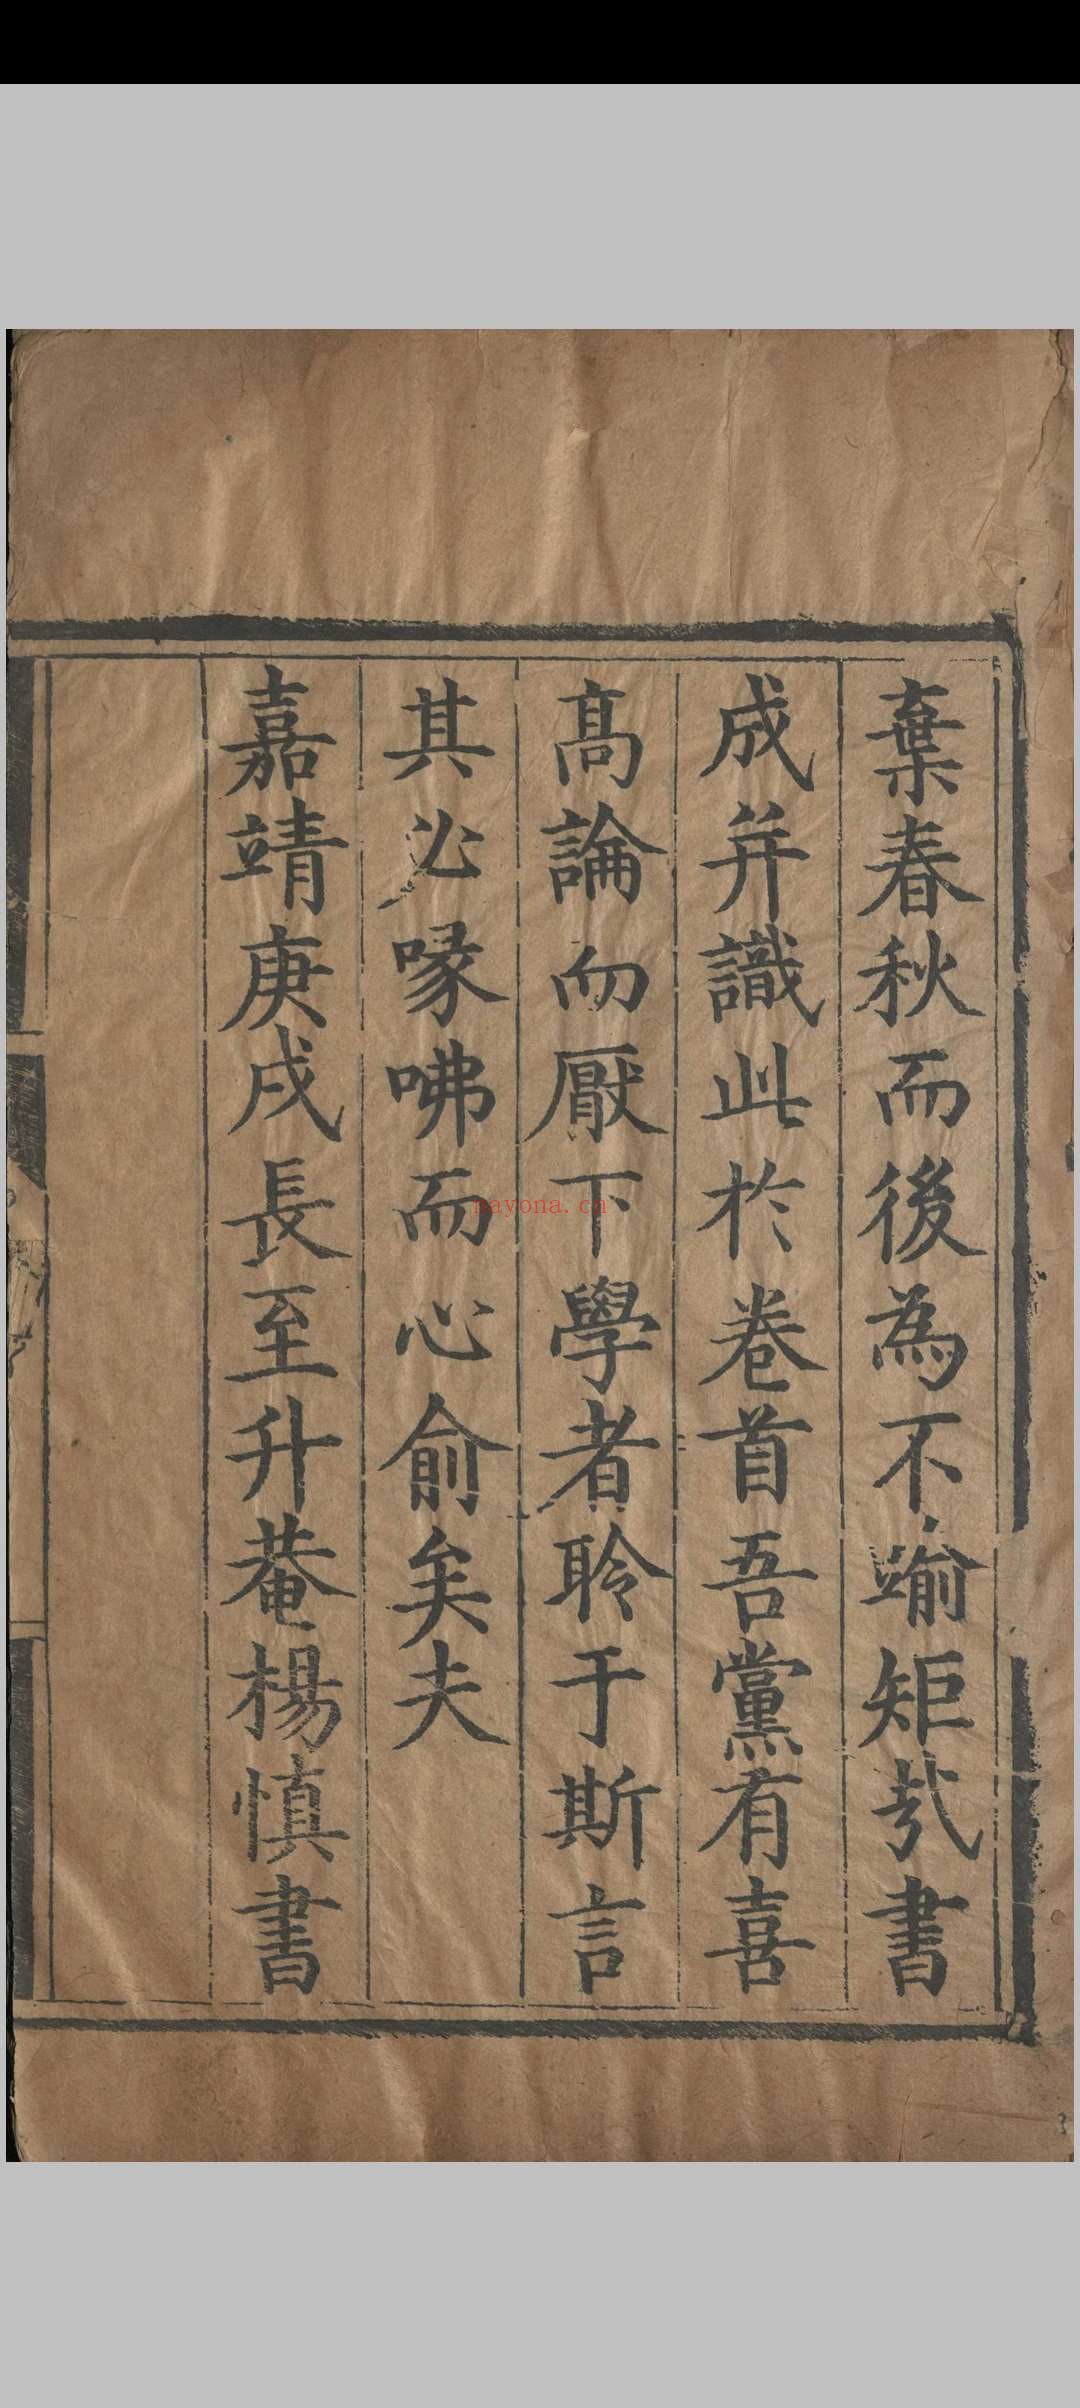 棄春秋而後為不踰矩㢤書
成并識此於卷首吾黨有喜
髙論而厭下學者聆于斯言
其必喙咈而心俞矣夫
嘉靖庚戌長至升菴楊慎書
nayona.cn